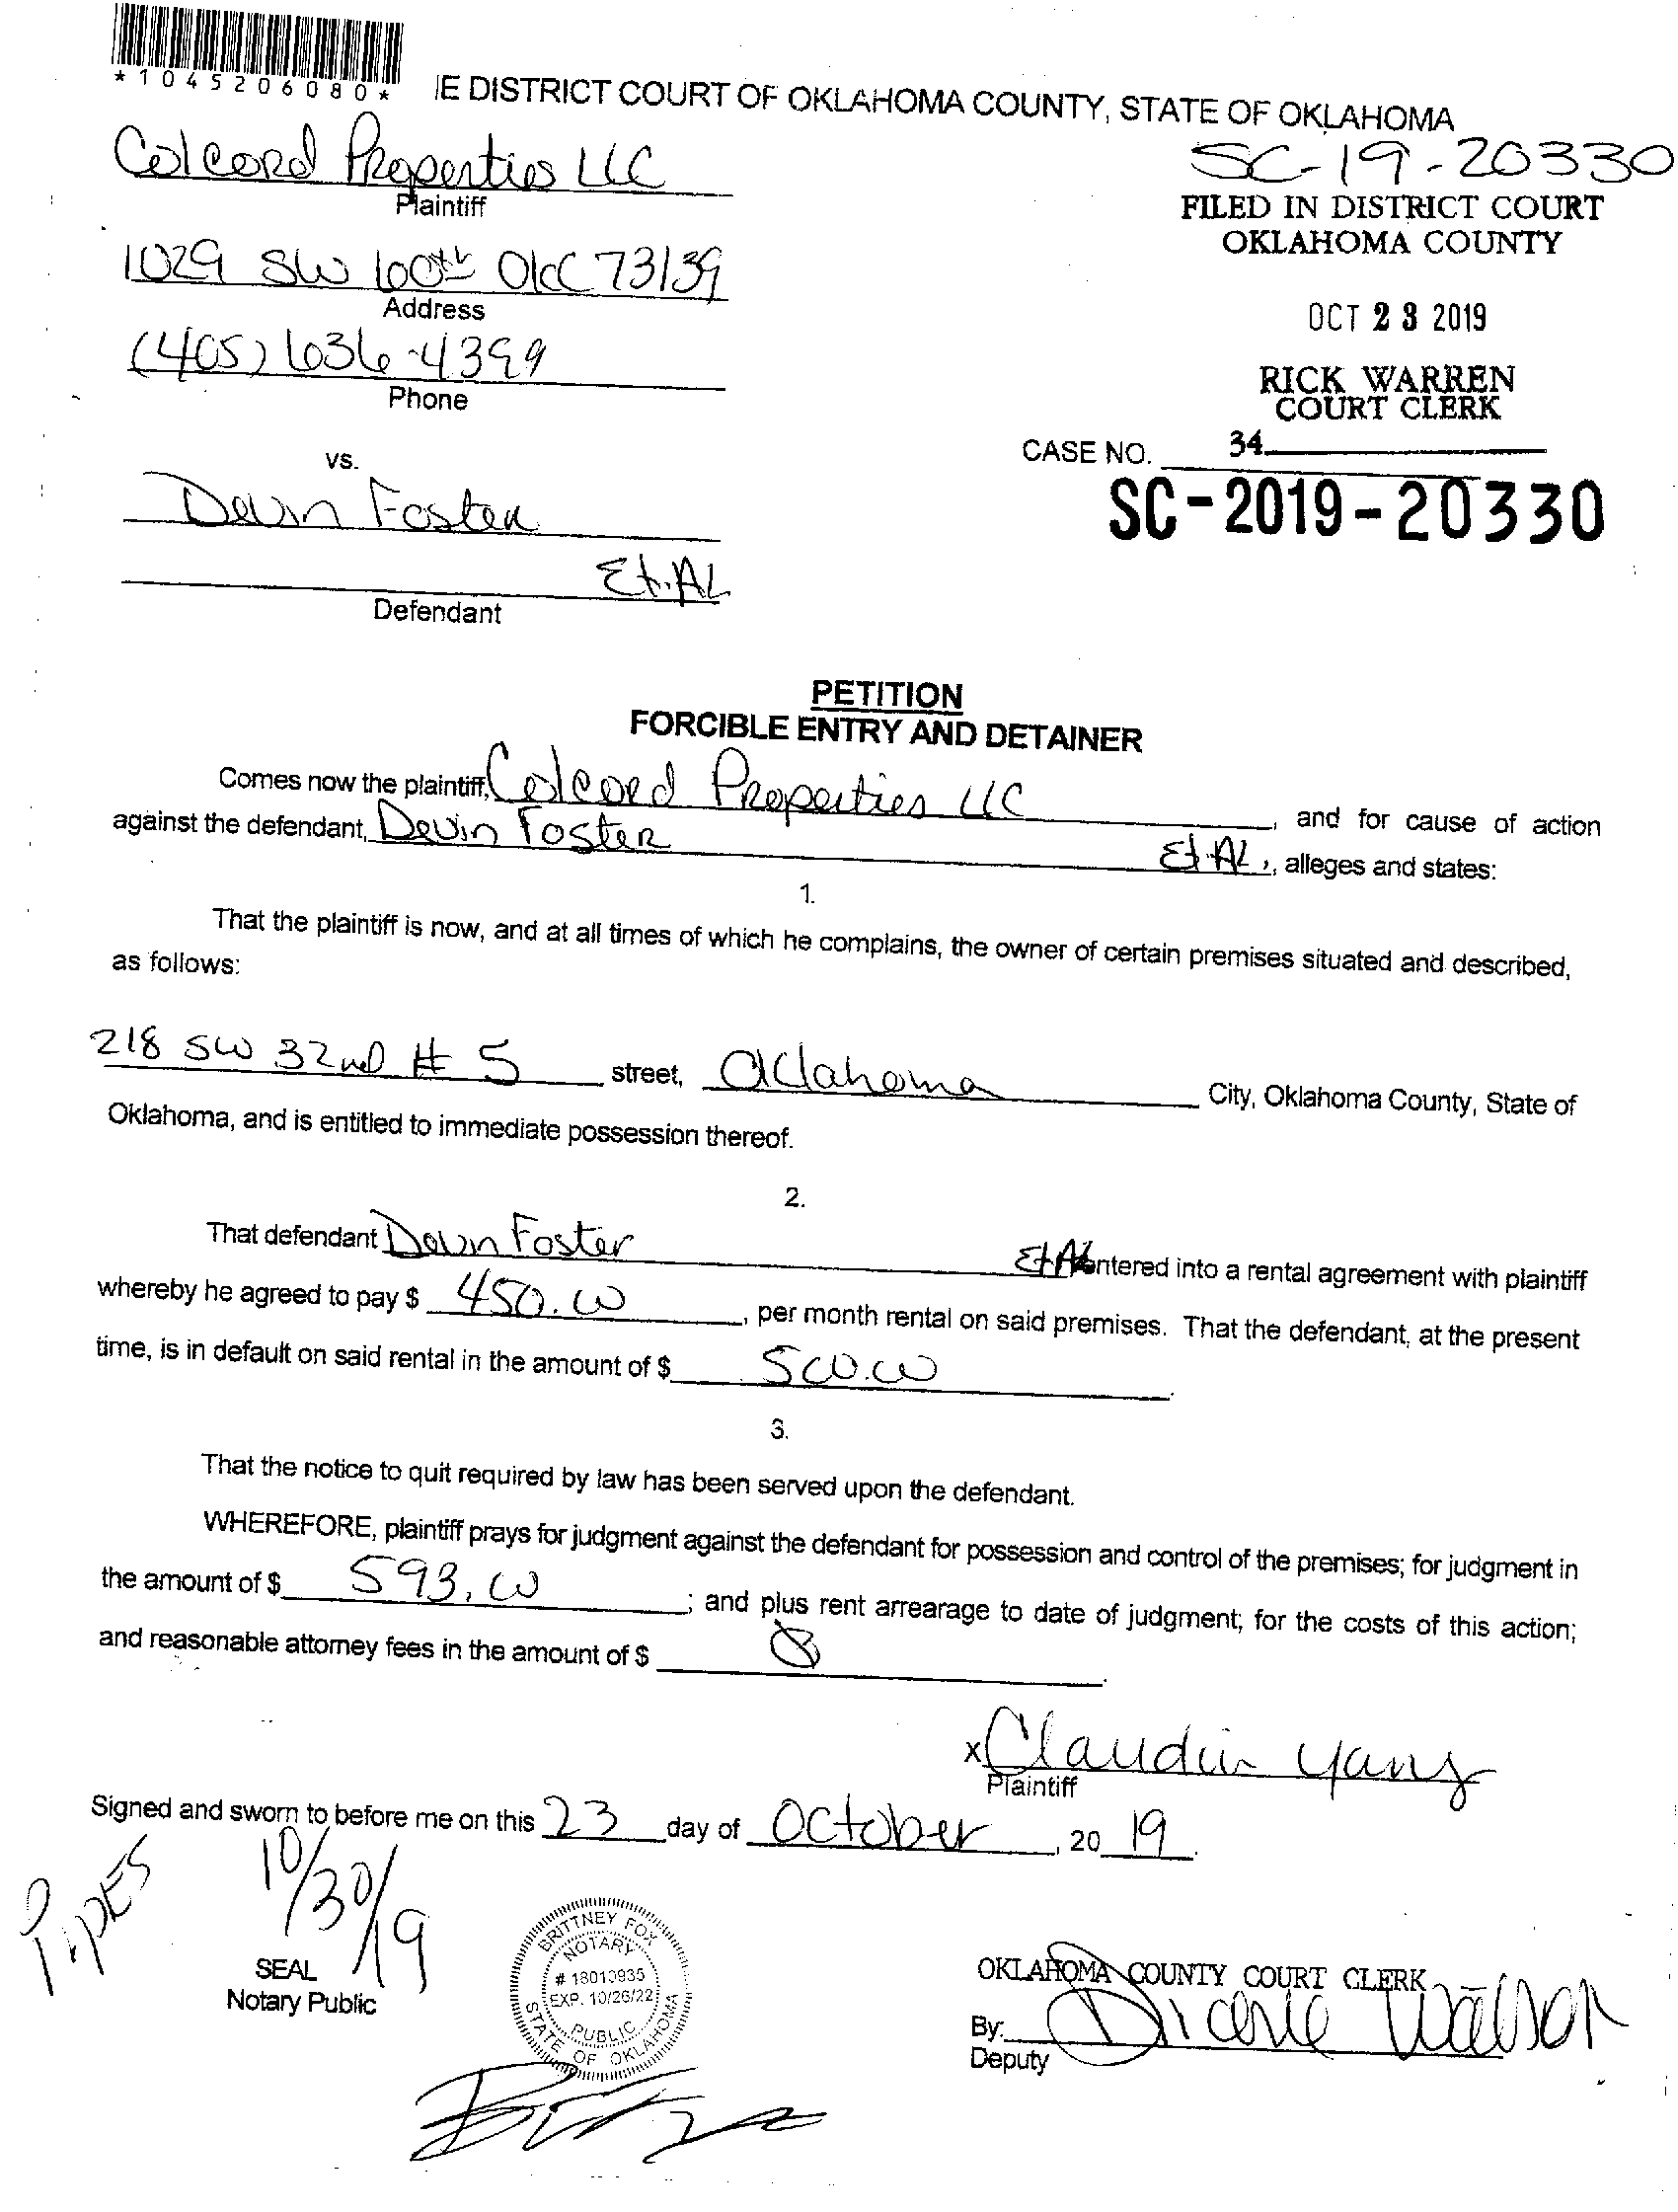 *1045206080*
IE DISTRICT COURT OF OKLAHOMA COUNTY, STATE OF OKLAHOMA
Colcord Properties LLC
Plaintiff
1029 SW 100th OKC 73139
Address
(405) 636-4399
Phone
SC-19-20330
FILED IN DISTRICT COURT
OKLAHOMA COUNTY
OCT 23 2019
RICK WARREN
COURT CLERK
34
CASE NO.
SC-2019-20330
vs.
Devin Foster
Et.AL
Defendant
PETITION
FORCIBLE ENTRY AND DETAINER
Comes now the plaintiff, Colcord Properties LLC, and for cause of action
against the defendant, Devin Foster Et.AL., alleges and states:
1.
That the plaintiff is now, and at all times of which he complains, the owner of certain premises situated and described,
as follows:
218 SW 32nd # 5 street, Oklahoma City, Oklahoma County, State of
Oklahoma, and is entitled to immediate possession thereof.
2.
That defendant Devin Foster Et AL entered into a rental agreement with plaintiff
whereby he agreed to pay $ 450.00, per month rental on said premises. That the defendant, at the present
time, is in default on said rental in the amount of $ 500.00.
3.
That the notice to quit required by law has been served upon the defendant.
WHEREFORE, plaintiff prays for judgment against the defendant for possession and control of the premises; for judgment in
the amount of $ 593.00; and plus rent arrearage to date of judgment; for the costs of this action;
and reasonable attorney fees in the amount of $ 0.
x Claudia Yang
Plaintiff
Signed and sworn to before me on this 23 day of October, 2019.
Pipes
10/30/19
SEAL
Notary Public
BRITTNEY FOX
NOTARY
# 18010935
EXP. 10/26/22
PUBLIC
STATE OF OKLAHOMA
OKLAHOMA COUNTY COURT CLERK
By: Diane Watson
Deputy